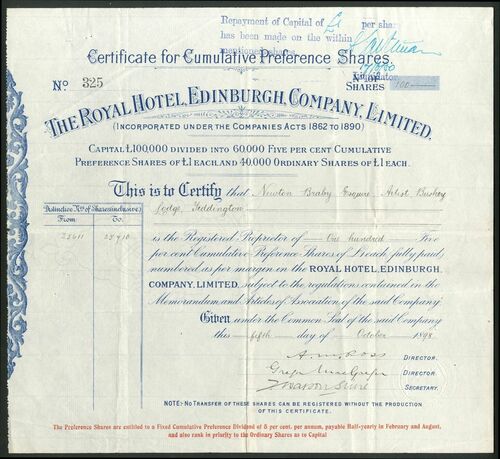 Repayment of Capital of £1 per share
has been made on the within
mentioned shares.
Liquidator
Certificate for Cumulative Preference Shares.
No 325
No OF SHARES 100
THE ROYAL HOTEL, EDINBURGH, COMPANY, LIMITED.
(INCORPORATED UNDER THE COMPANIES ACTS 1862 TO 1890)
CAPITAL £100,000 DIVIDED INTO 60,000 FIVE PER CENT CUMULATIVE
PREFERENCE SHARES OF £1 EACH, AND 40,000 ORDINARY SHARES OF £1 EACH.
This is to Certify that Newton Braby Esquire Artist Bushey
Lodge, Teddington
Distinctive Nos of Shares (inclusive)
From To
is the Registered Proprietor of One hundred Five
per cent Cumulative Preference Shares of £1 each, fully paid,
numbered as per margin in the ROYAL HOTEL, EDINBURGH,
COMPANY, LIMITED, subject to the regulations contained in the
Memorandum and Articles of Association of the said Company.
Given under the Common Seal of the said Company
this fifth day of October 1898
DIRECTOR.
DIRECTOR.
SECRETARY.
NOTE:- NO TRANSFER OF THESE SHARES CAN BE REGISTERED WITHOUT THE PRODUCTION
OF THIS CERTIFICATE.
The Preference Shares are entitled to a Fixed Cumulative Preference Dividend of 5 per cent. per annum, payable Half-yearly in February and August,
and also rank in priority to the Ordinary Shares as to Capital